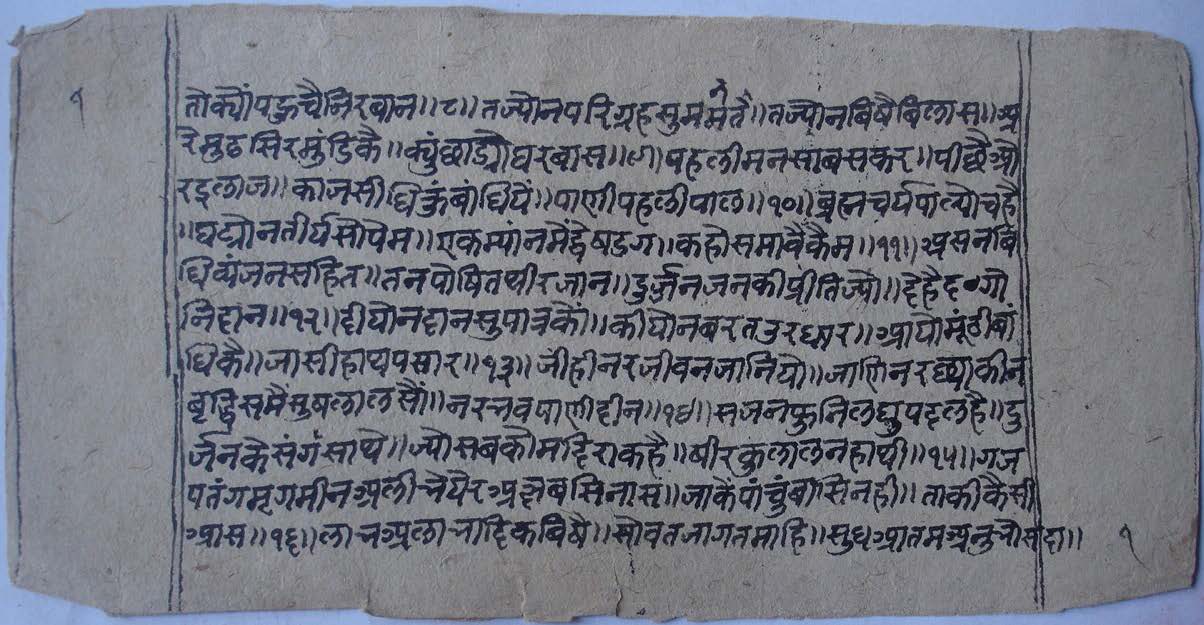 १
तोक्यौंपहुचैनिरबान॥८॥तज्यौनपरिग्रहसुममतै॥तज्यौनबिषैबिलास॥अ
रेमुढसिरमुंडिकै॥क्युंछाड्यौघरबास॥९॥पहलीमनसाबसकर॥पीछैऔ
रइलाज॥काजसीधिकुंबांधियै॥पाणीपहलीपाल॥१०॥ब्रह्मचर्यपाल्योचहै
॥घट्यौनतीयसौंपेम॥एकम्यांनमैंद्वैषडग॥कहौसमावैकैम॥११॥असनबि
धिव्यंजनसहित॥तनपोषितथीरजान॥दुर्जनजनकीप्रीतिज्यौ॥देहैदगो
निदान॥१२॥दीयौनदानसुपात्रकौं॥कीयौनबरतउरधार॥आयौमूंठीबां
धिकै॥जासीहाथपसार॥१३॥जीहीनरजीवनजानियौ॥जाणिनरछ्याकीन
बृद्धिसमैंमुषलालसौं॥नरभवपाणीदीन॥१४॥सजनफुनिलघुपदलहै॥दु
र्जनकैसंगसाथे॥ज्यौसबकौमदिराकहै॥षीरकुलालनहाथी॥१५॥गज
पतंगमृगमीनअली॥भैयैरअज्ञबसिनास॥जाकैंपांचुंबसिनही॥ताकीकैसी
आस॥१६॥लाभअलाभादिकबिषै॥सोवतजागतमाहि॥सुधआतमअनुभौसदा॥
१